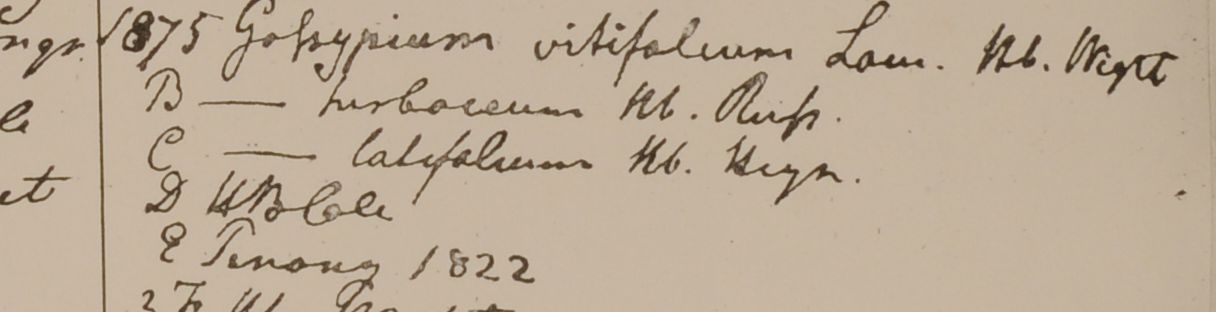 ngr.
le
et
1875 Gossypium vitifolium Lam. Hb. Wight
B — herbaceum Hb. Russ.
C — latifolium Hb. Heyn.
D HB Calc
E Penang 1822
F Hb.